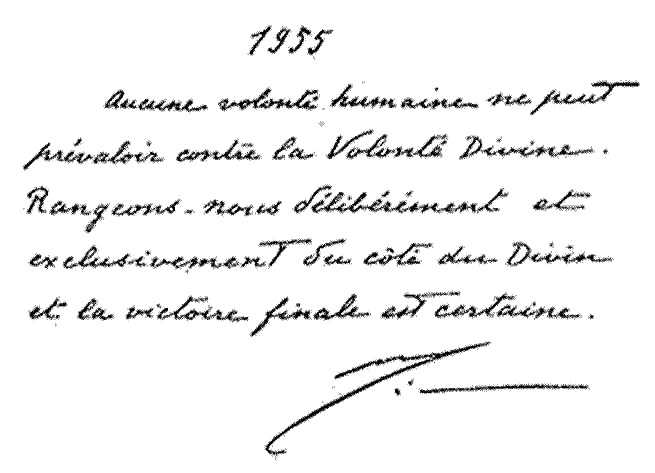 1955
Aucune volonté humaine ne peut
prévaloir contre la Volonté Divine.
Rangeons-nous délibérément et
exclusivement du côté du Divin
et la victoire finale est certaine.